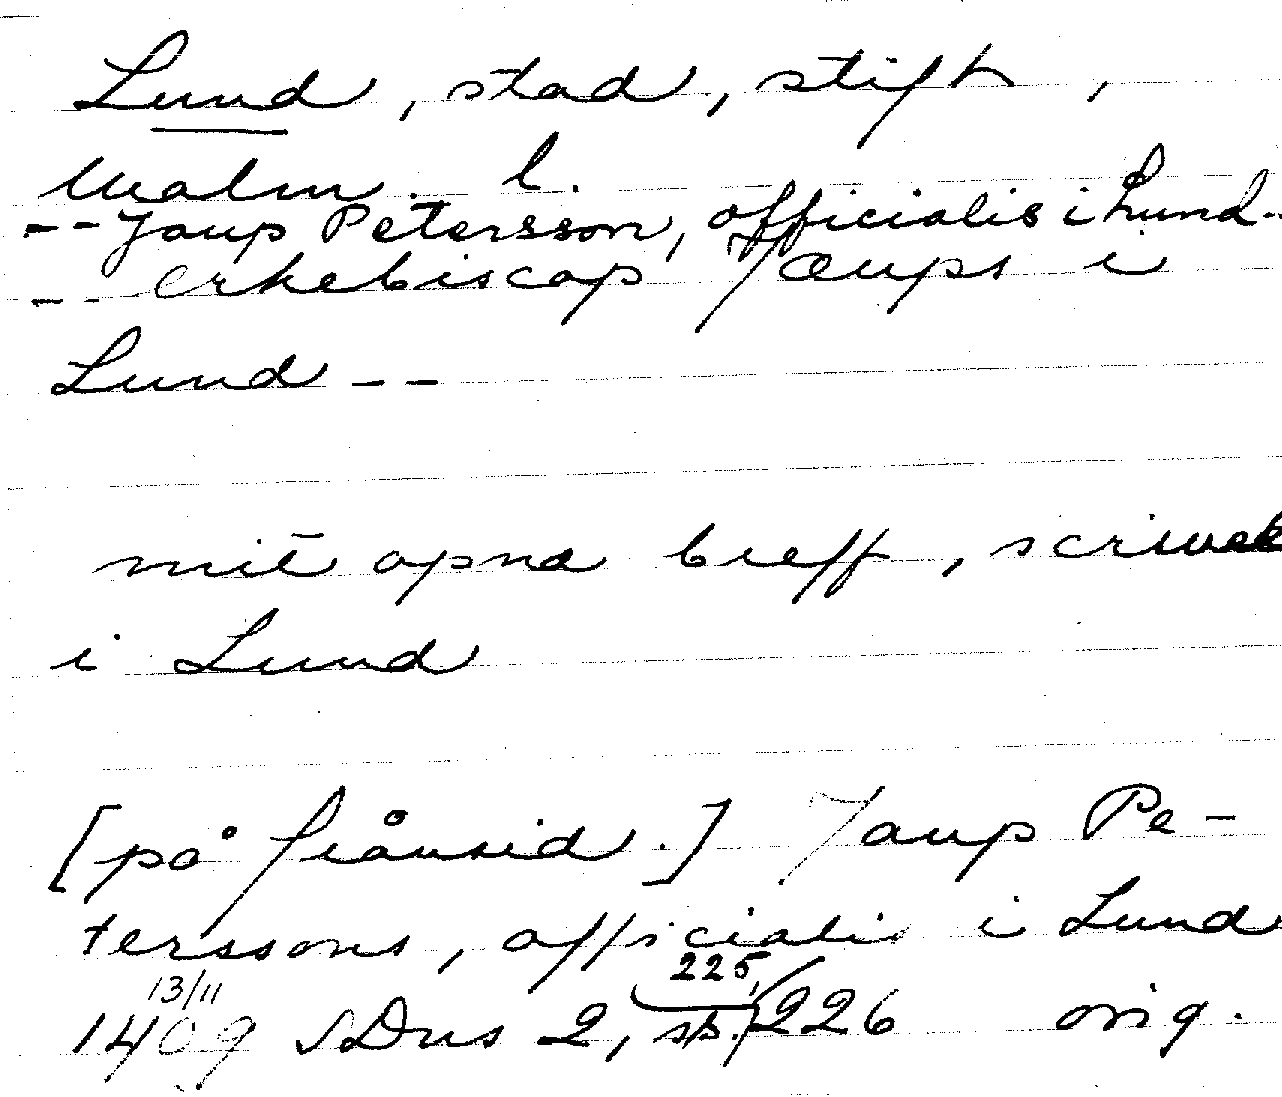 Lund, stad, stift,
Malm. l.
-- Jaup Petersson, officialis i Lund --
-- erkebiscop Jæups i
Lund --
mit opna breff, scriuat
i Lund
[på frånsid.] Jaup Pe-
terssons, officialis i Lund
13/11 225,
1409 SDns 2, s. 226 orig.